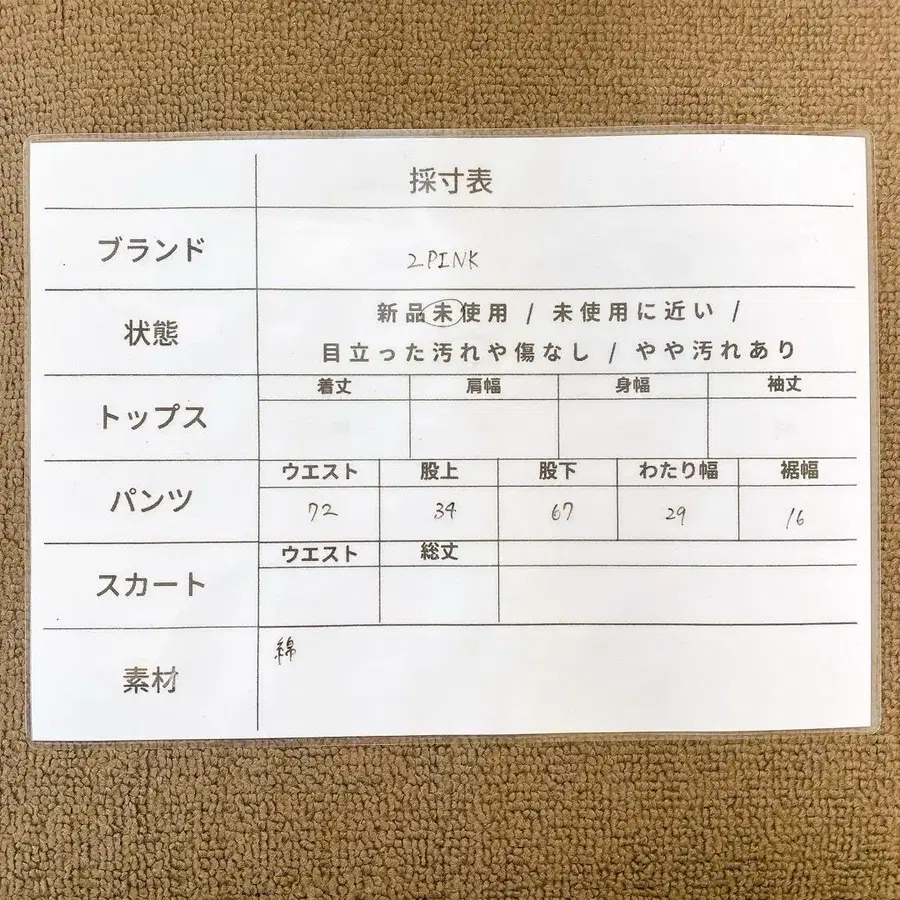 採寸表
ブランド 2PINK
状態 新品未使用 / 未使用に近い /
目立った汚れや傷なし / やや汚れあり
トップス 着丈 肩幅 身幅 袖丈
パンツ ウエスト 股上 股下 わたり幅 裾幅
72 34 67 29 16
スカート ウエスト 総丈
素材 綿